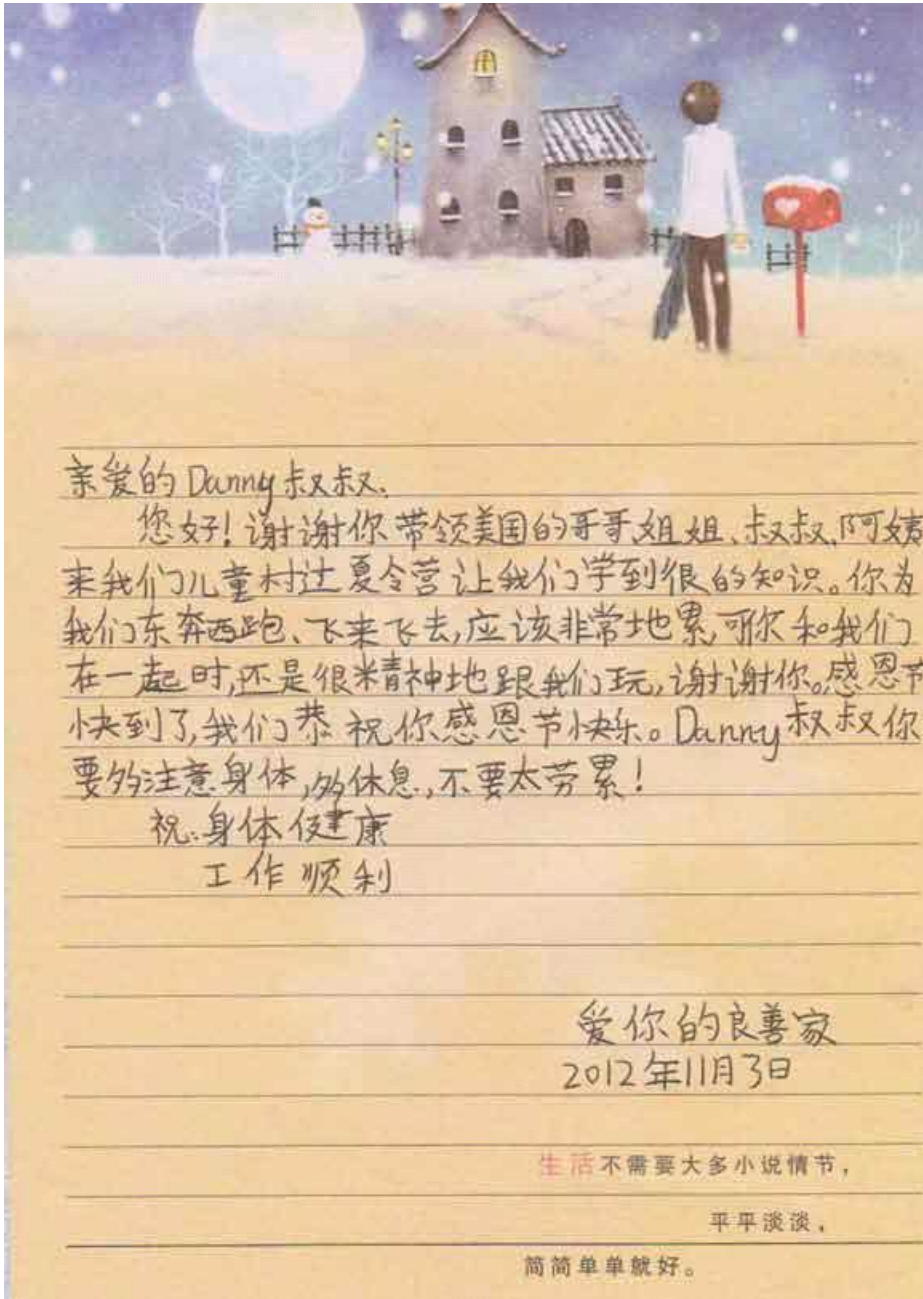 亲爱的Danny叔叔、
您好！谢谢你带领美国的哥哥姐姐、叔叔、阿姨
来我们儿童村过夏令营让我们学到很的知识。你为
我们东奔西跑、飞来飞去,应该非常地累,可你和我们
在一起时,还是很精神地跟我们玩,谢谢你。感恩节
快到了,我们恭祝你感恩节快乐。Danny叔叔你
要多注意身体,多休息,不要太劳累！
祝:身体健康
工作顺利
爱你的良善家
2012年11月3日
生活不需要大多小说情节，
平平淡淡，
简简单单就好。